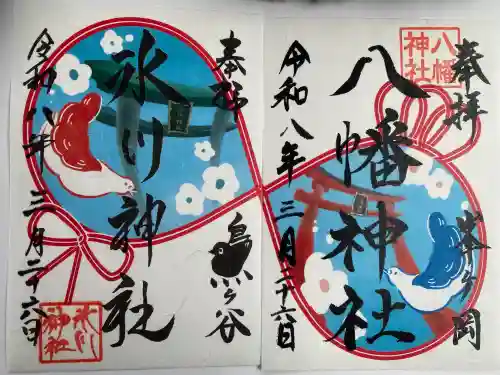 奉拝
八幡
神社
峯ヶ岡
八幡神社
令和八年三月二十六日
奉拝
鳥ヶ谷
氷川神社
氷川
神社
令和八年三月二十六日